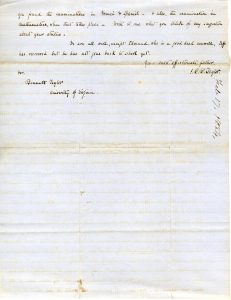 you passed the examinations in French & Spanish. & also, the examination in
mathematics, when that takes place. Write to me, what you think of my suggestion
about your studies.
We are all well, except Edmund who is a good deal unwell. Jeff
has recovered but he has not gone back to school yet.
Your most affectionate father,
Mr.
Bennett Taylor
University of Virginia